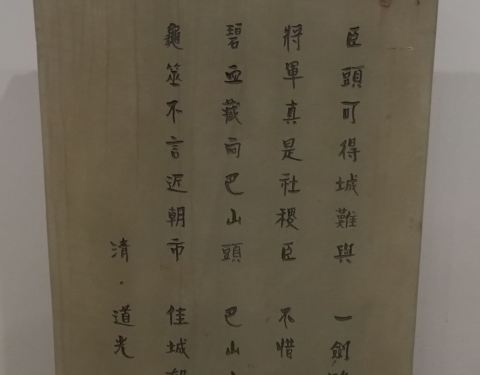 臣頭可得城難與 一劍
將軍真是社稷臣 不惜
碧血藏向巴山頭 巴山
龜筮不言近朝市 佳城
清·道光